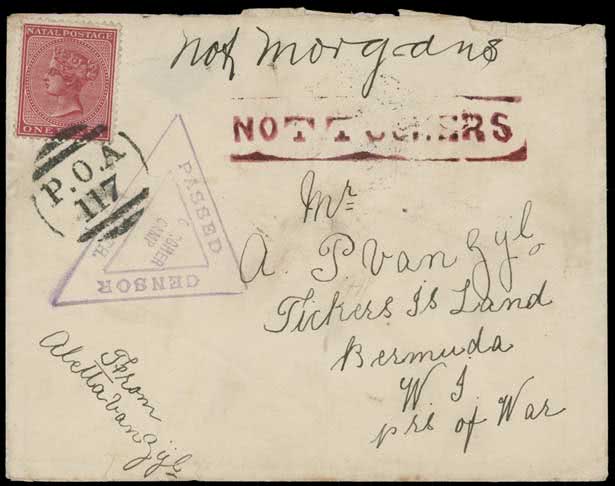 NATAL POSTAGE
ONE
not morgans
NOT TUCKERS
P.O.A
117
PASSED
CENSOR
CAMP
Mr
A. P. Van Zyl
Tickers Is Land
Bermuda
W. I.
prs of War
From
Aletta Van Zyl